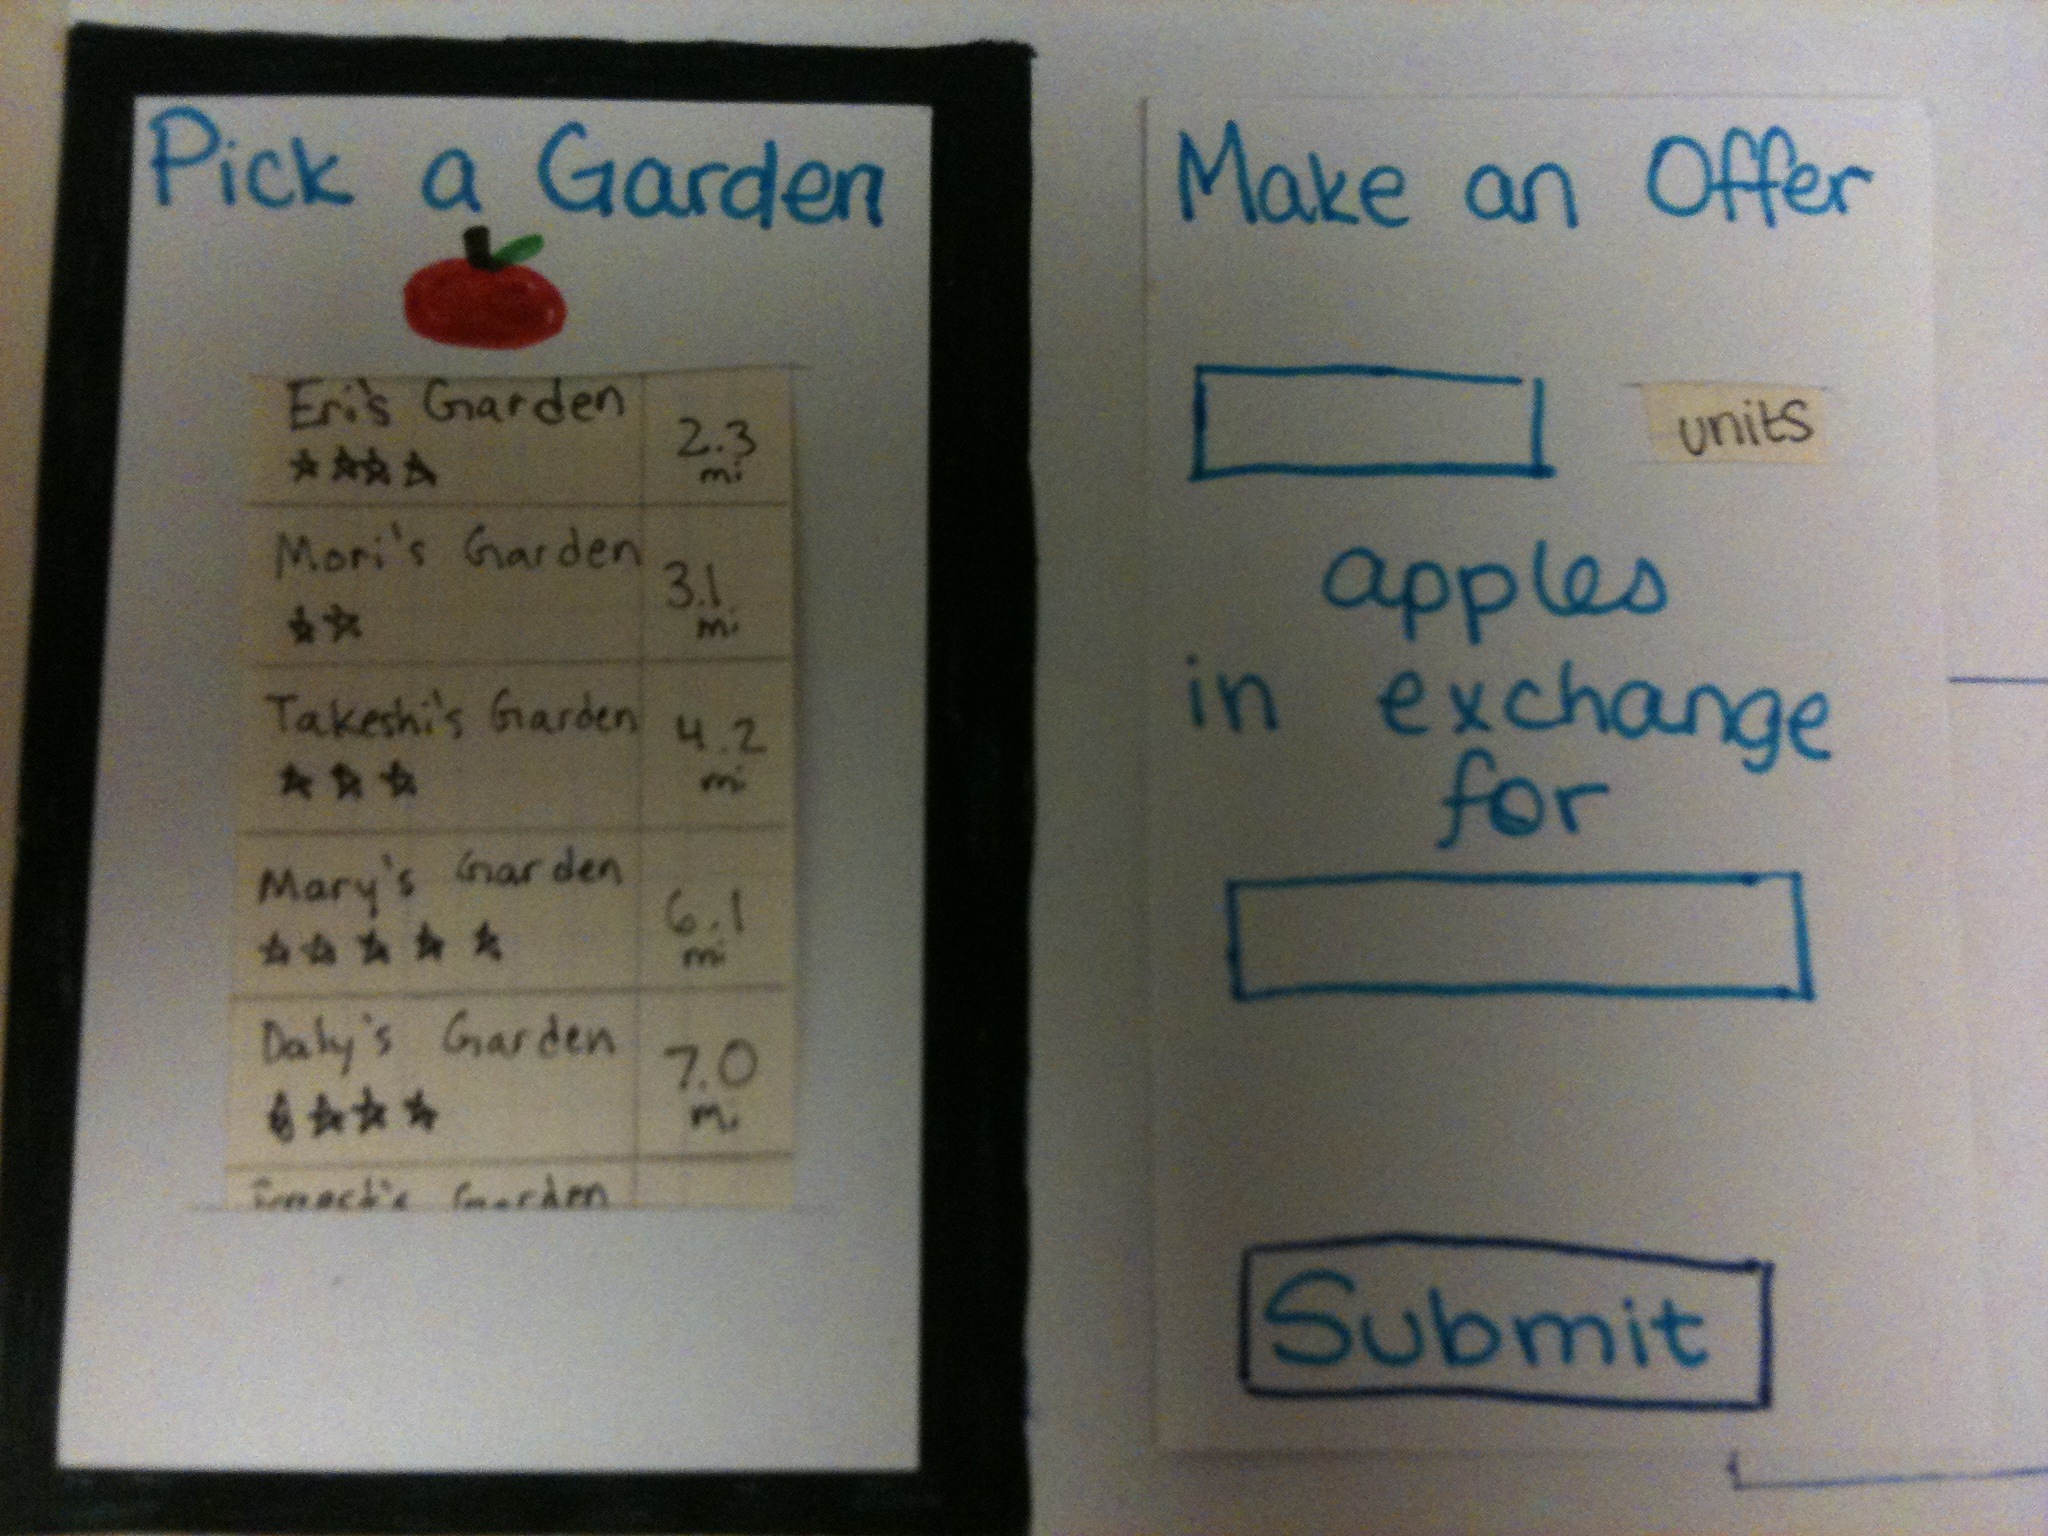 Pick a Garden
Eri's Garden
2.3
mi
Mori's Garden
3.1
mi
Takeshi's Garden
4.2
mi
Mary's Garden
6.1
mi
Daly's Garden
7.0
mi
Garden
Make an Offer
units
apples
in exchange
for
Submit